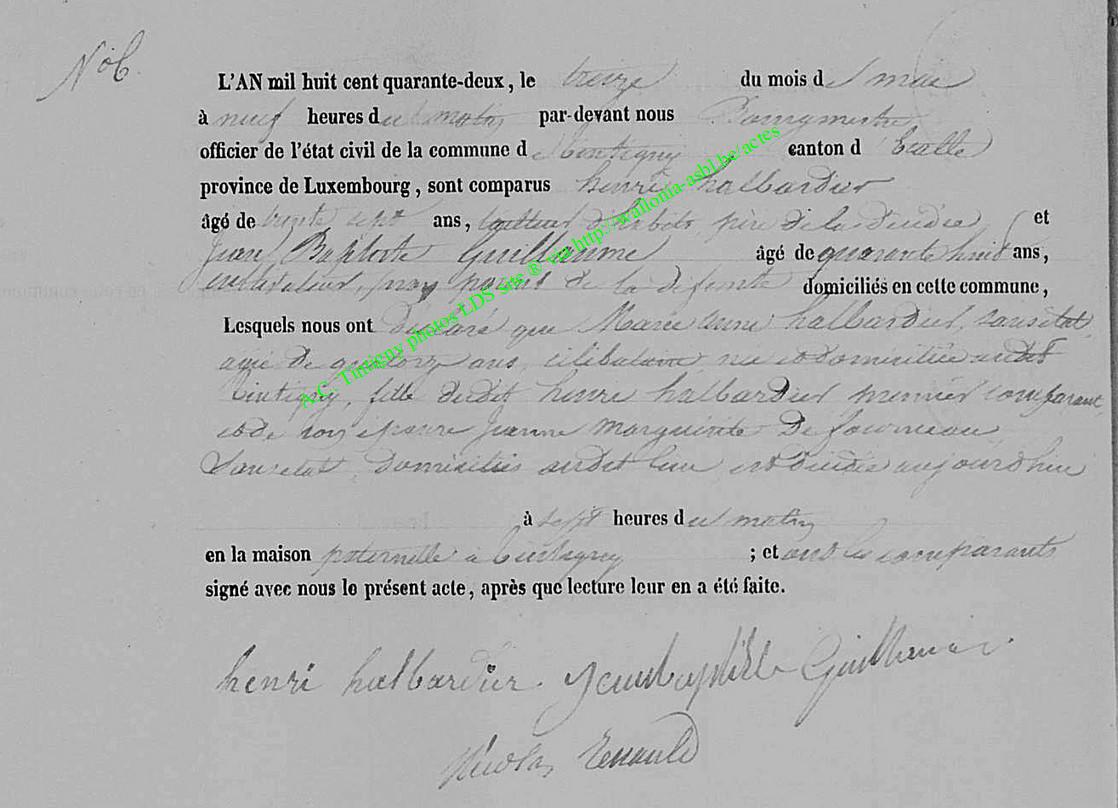 N° 6.
L'AN mil huit cent quarante-deux, le treize du mois de mai
à neuf heures du matin par-devant nous Bourgmestre
officier de l'état civil de la commune de Tintigny canton d'Etalle
province de Luxembourg, sont comparus henri halbardier
âgé de trente sept ans, tailleur d'habits père de la décédée et
Jean Baptiste Guillaume âgé de quarante huit ans,
cultivateur, non parent de la défunte domiciliés en cette commune,
Lesquels nous ont déclaré que Marie halbardier, sans état
agée de ans, célibataire, née et domiciliée audit
Tintigny, fille dudit henri halbardier premier comparant
et de son épouse Jeanne Marguerite De fourneau
Sans état, domiciliés audit lieu est décédée aujourd'hui
à sept heures du matin
en la maison paternelle à Tintigny ; et ont les comparants
signé avec nous le présent acte, après que lecture leur en a été faite.
henri halbardier. Jean baptiste Guillaume.
Nicolas Renauld
A.C. Tintigny photos LDS site ® via http://wallonia-asbl.be/actes